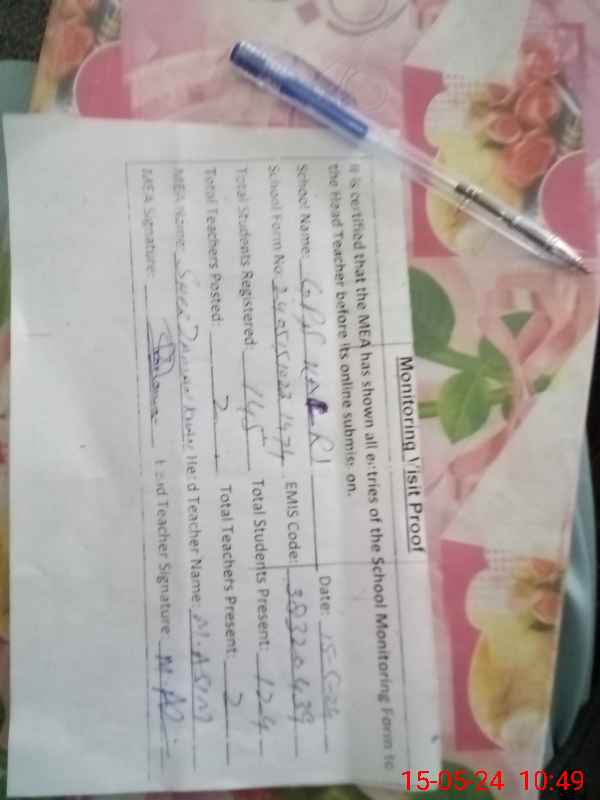 Monitoring Visit Proof
It is certified that the MEA has shown all entries of the School Monitoring Form to
the Head Teacher before its online submission.
School Name: GPS Date: 15-5-24
School Form No: EMIS Code: 38320439
Total Students Registered: 145 Total Students Present: 124
Total Teachers Posted: 2 Total Teachers Present: 2
MEA Name: Head Teacher Name:
MEA Signature: Head Teacher Signature:
15-05-24 10:49